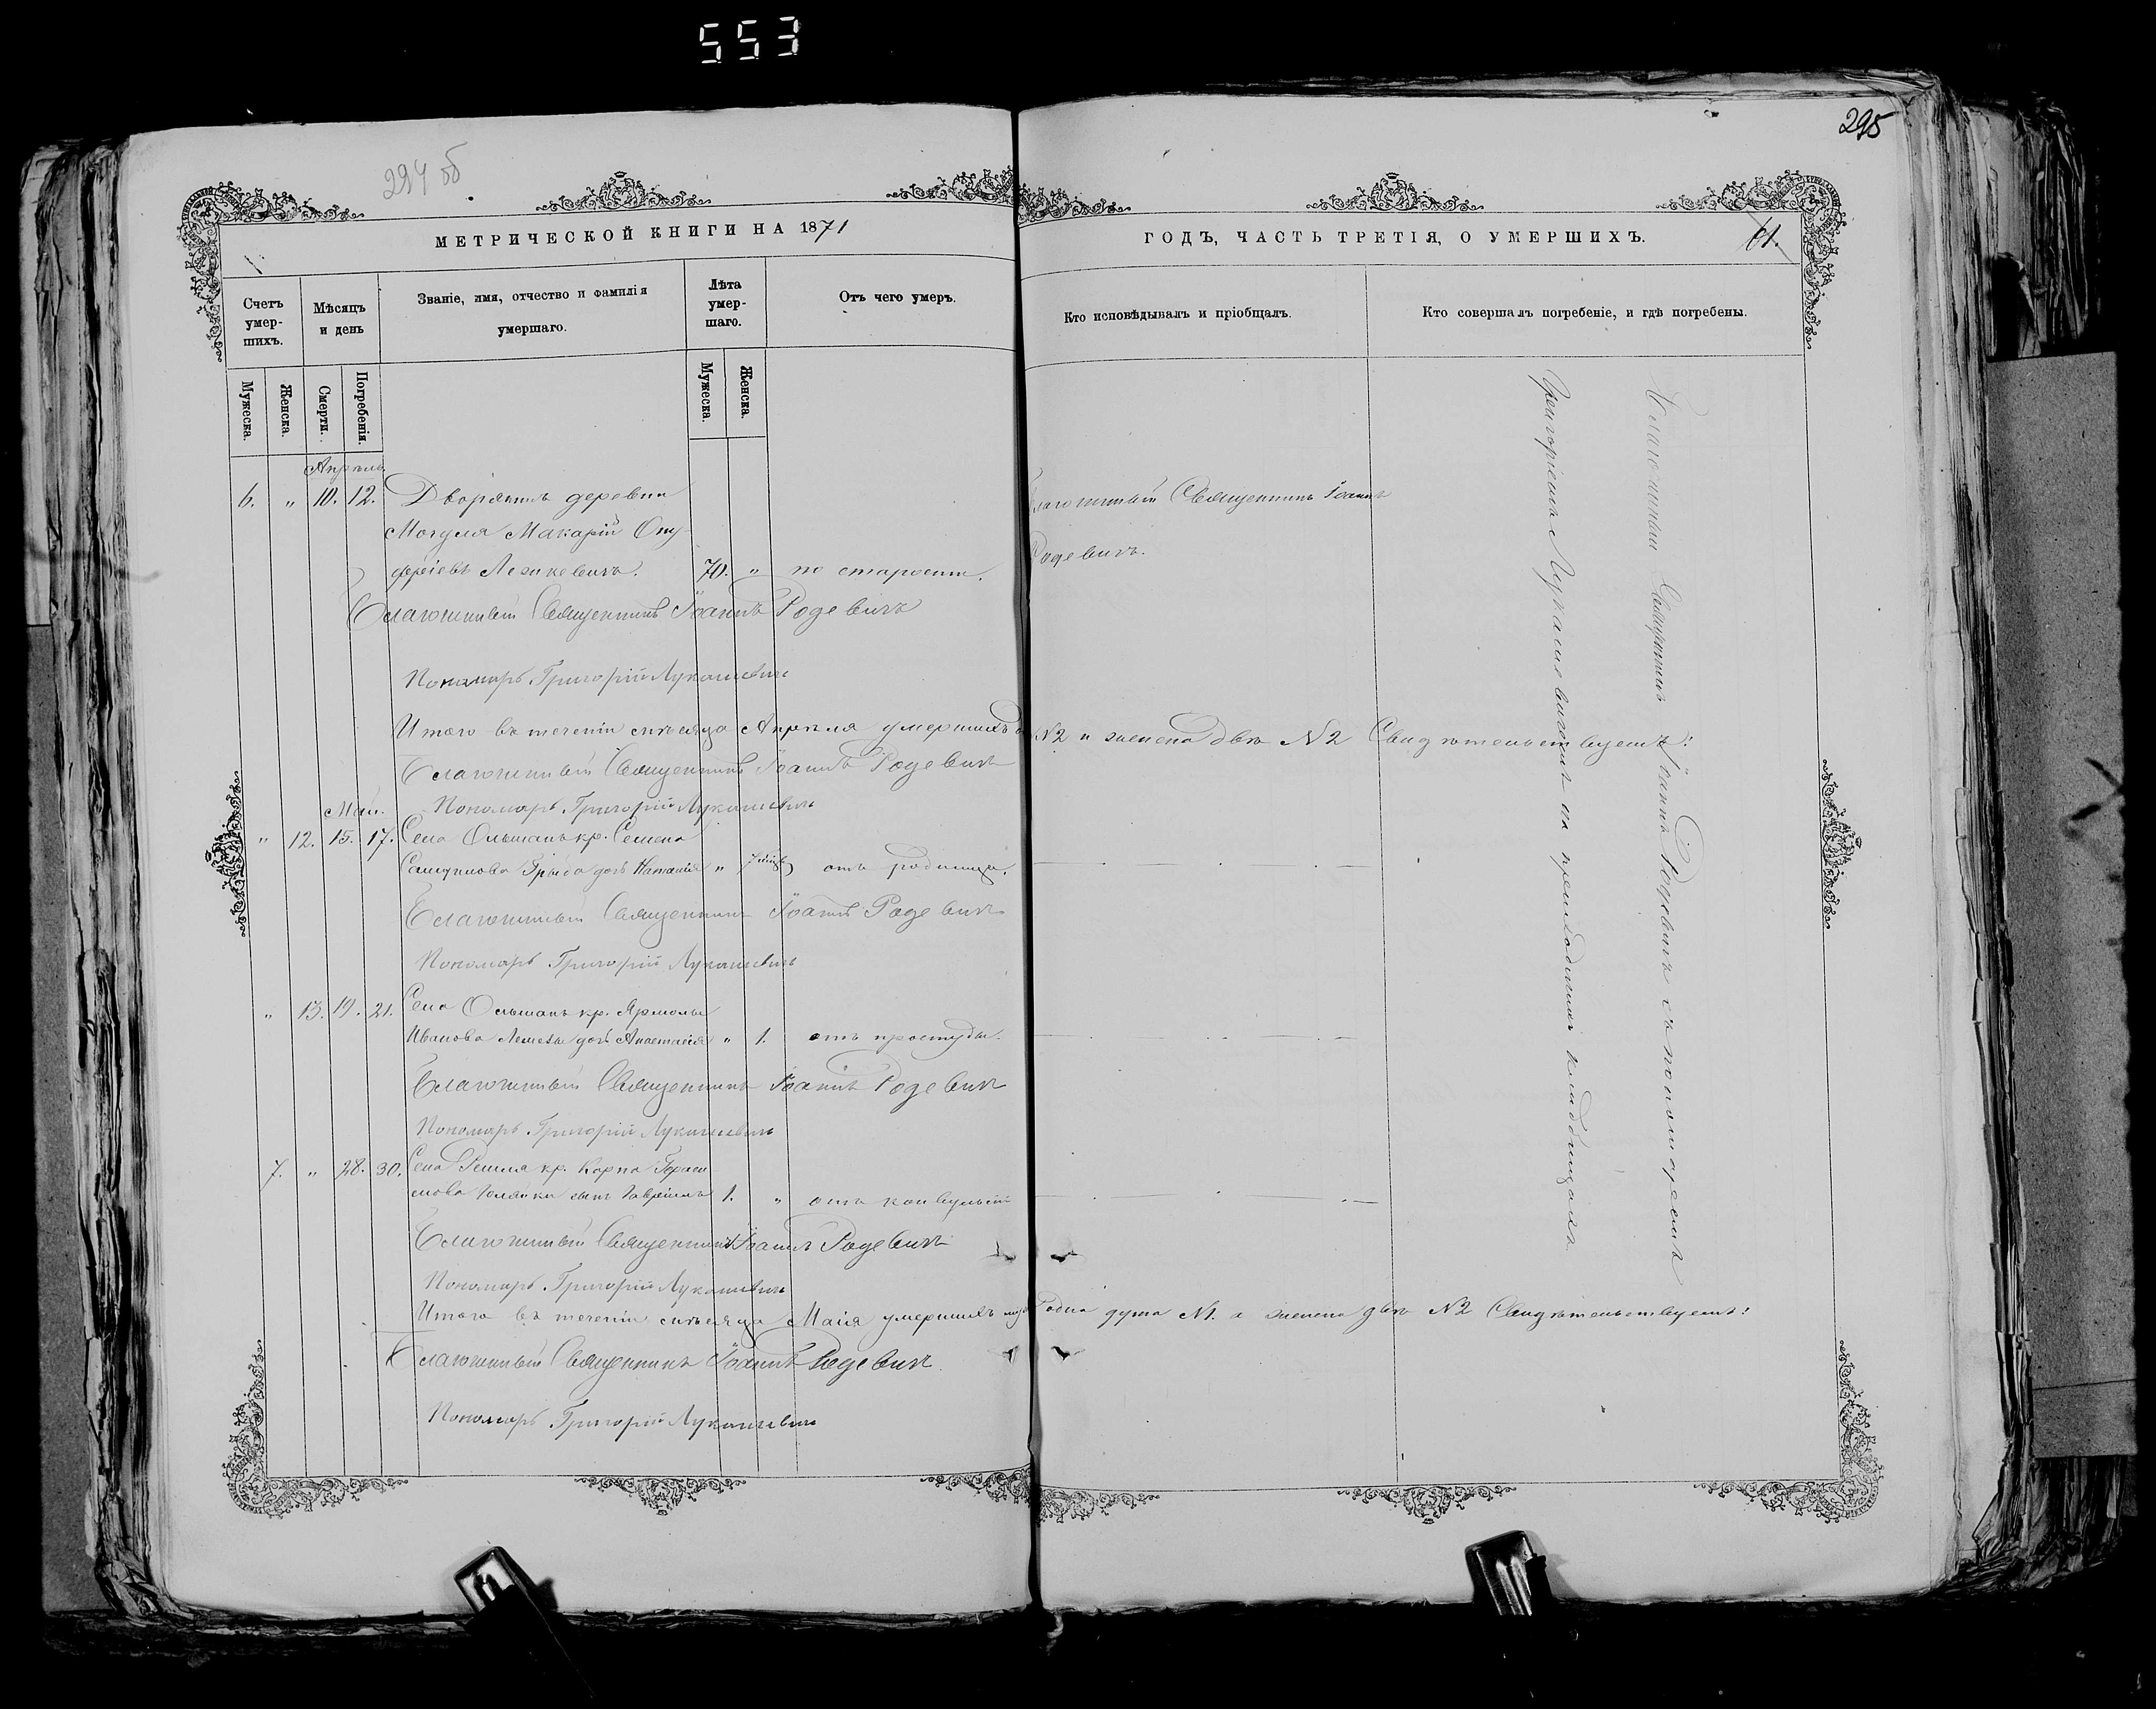 553
295
294 об
МЕТРИЧЕСКОЙ КНИГИ НА 1871
ГОДЪ, ЧАСТЬ ТРЕТІЯ, О УМЕРШИХЪ.
61.
Счетъ умер-шихъ.
Мѣсяцъ и день
Званіе, имя, отчество и фамилія
умершаго.
Лѣта умер-шаго.
Отъ чего умеръ.
Кто исповѣдывалъ и пріобщалъ.
Кто совершалъ погребеніе, и гдѣ погребены.
Мужеска.
Женска.
Смерти.
Погребенія.
Мужеска.
Женска.
Апрѣль
6. " 10. 12. Дворянинъ деревни
Могуля Макарій Ону-
фріевъ 70. " по старости.
Благочинный Священникъ Іоаннъ
Родевичъ.
Благочинный Священникъ Іоаннъ Родевичъ
Пономарь Григорій Лукашевичъ
Итого въ теченіи мѣсяца Апрѣля умершихъ N2 и женска двѣ N2 Свидѣтельствуемъ:
Благочинный Священникъ Іоаннъ Родевичъ
Пономарь Григорій Лукашевичъ
Май.
" 12. 15. 17. Села Ольшанъ кр. Семена
дочь Наталія " 7 отъ родимца.
Благочинный Священникъ Іоаннъ Родевичъ
Пономарь Григорій Лукашевичъ
" 13. 19. 21. Села Ольшанъ кр. Ярмолы
Иванова дочь Анастасія " 1. отъ простуды.
Благочинный Священникъ Іоаннъ Родевичъ
Пономарь Григорій Лукашевичъ
7. " 28. 30. Села кр. Карпа Гераси-
мова сынъ Гавріилъ 1. " отъ конвульсій
Благочинный Священникъ Іоаннъ Родевичъ
Пономарь Григорій Лукашевичъ
Итого въ теченіи мѣсяца Маія умершихъ одна душа N1. а женска двѣ N2 Свидѣтельствуемъ:
Благочинный Священникъ Іоаннъ Родевичъ.
Пономарь Григорій Лукашевичъ
Благочинный Священникъ Іоаннъ Родевичъ съ пономаремъ
Григоріемъ Лукашевичемъ на приходскихъ кладбищахъ